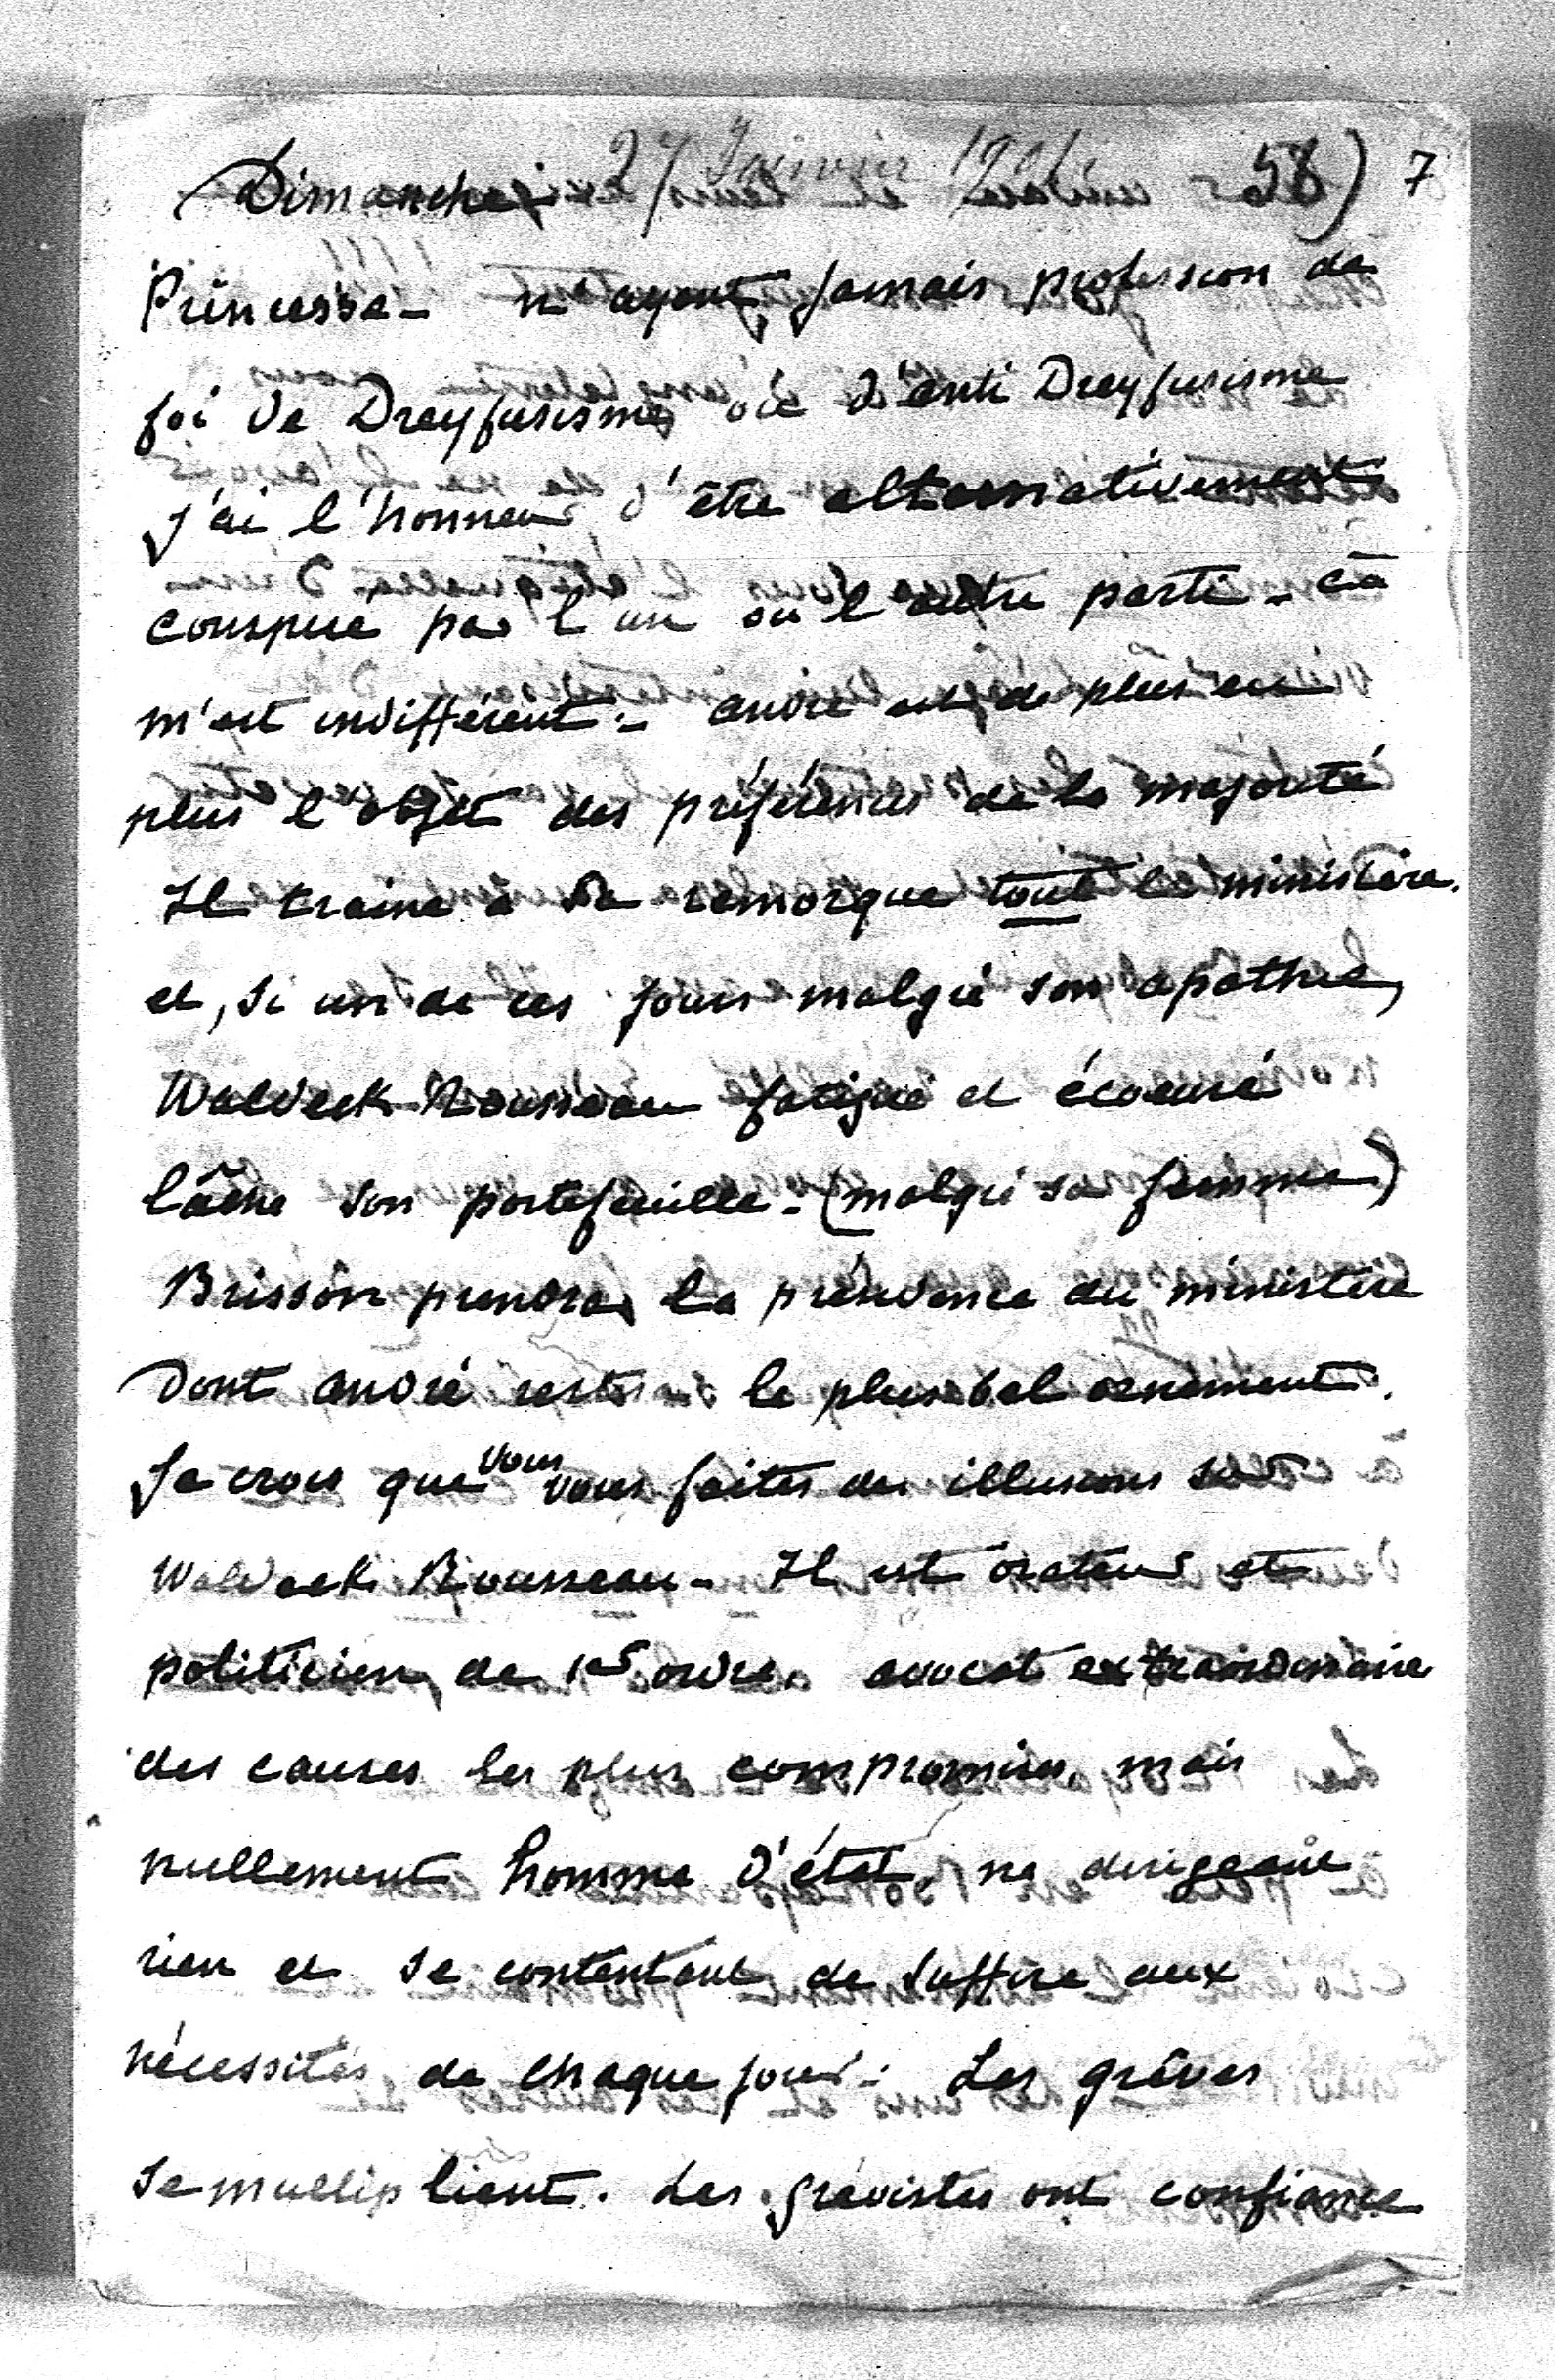 Dimanche 27 Janvier 1901 58) 7
Princesse - n'ayant jamais profession de
foi de Dreyfusisme où d'anti Dreyfusisme
j'ai l'honneur d'être alternativement
conspué par l'un ou l'autre parti - cà
m'est indifférent. - andré est de plus en
plus l'objet des préférences de la majorité
Il traine à sa remorque tout le ministère.
et, si un de ces jours malgré son apathie,
Waldeck Rousseau fatigué et écoeuré
lâche son portefeuille - (malgré sa femme)
Brisson prendra la présidence du ministère
Dont andré restera le plus bel ornement.
Je crois que vous vous faites des illusions sur
Waldeck Rousseau - Il est orateur et
politicien de 1er ordre. avocat extraordinaire
des causes les plus compromises, mais
nullement homme d'état, ne dirigeant
rien et se contentant de suffire aux
nécessités de chaque jour. Les grêves
se multiplient. Les grévistes ont confiance